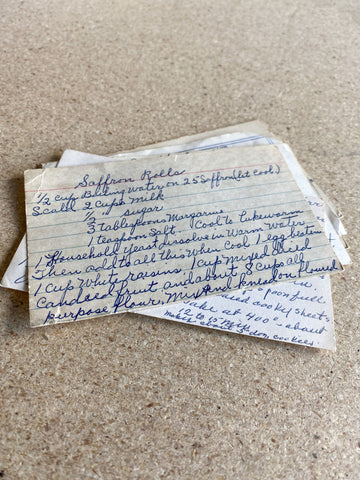 Saffron Rolls
1/2 cup Boiling Water on 25 Saffron (let cool)
Scald 2 Cups Milk
1/2 " sugar
3 Tablespoons Margarine
1 teaspoon Salt Cool to lukewarm
1 Household Yeast dissolve in Warm Water
Then add to all this When Cool 1 egg beaten
1 Cup White raisins. 1 Cup Mixed diced
Candied fruit and about 8 cups all
purpose flour. Mix And knead on floured
spoonfull
cookey sheets
Bake at 400° about
12 to 15 Min
makes about 5 doz cookies